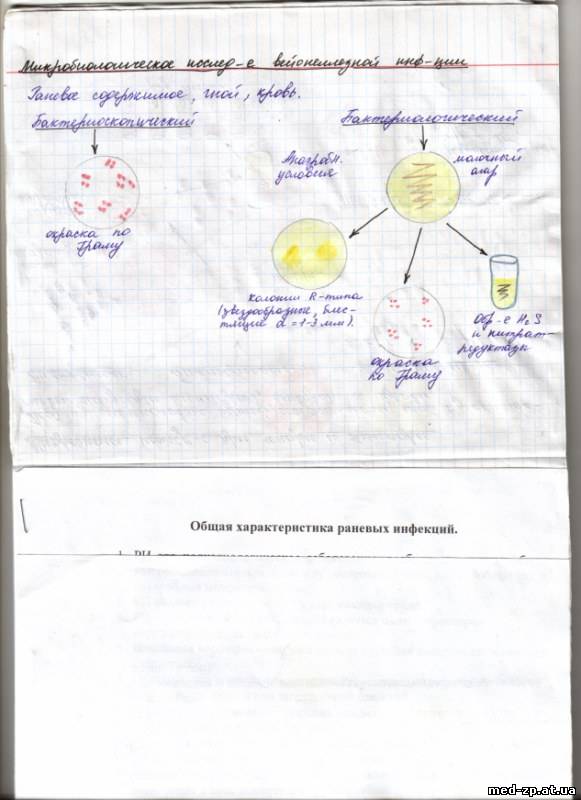 Микробиологическое исслед-е вейонеллезной инф-ции
Раневое содержимое, гной, кровь.
Бактериоскопический
Бактериологический
окраска по
Граму
Анаэробн.
условия
молочный
агар
колонии R-типа
(звездообразные, блес-
тящие d=1-3 мм).
окраска
по Граму
Обр-е H2S
и нитрат-
редуктазы
Общая характеристика раневых инфекций.
med-zp.at.ua